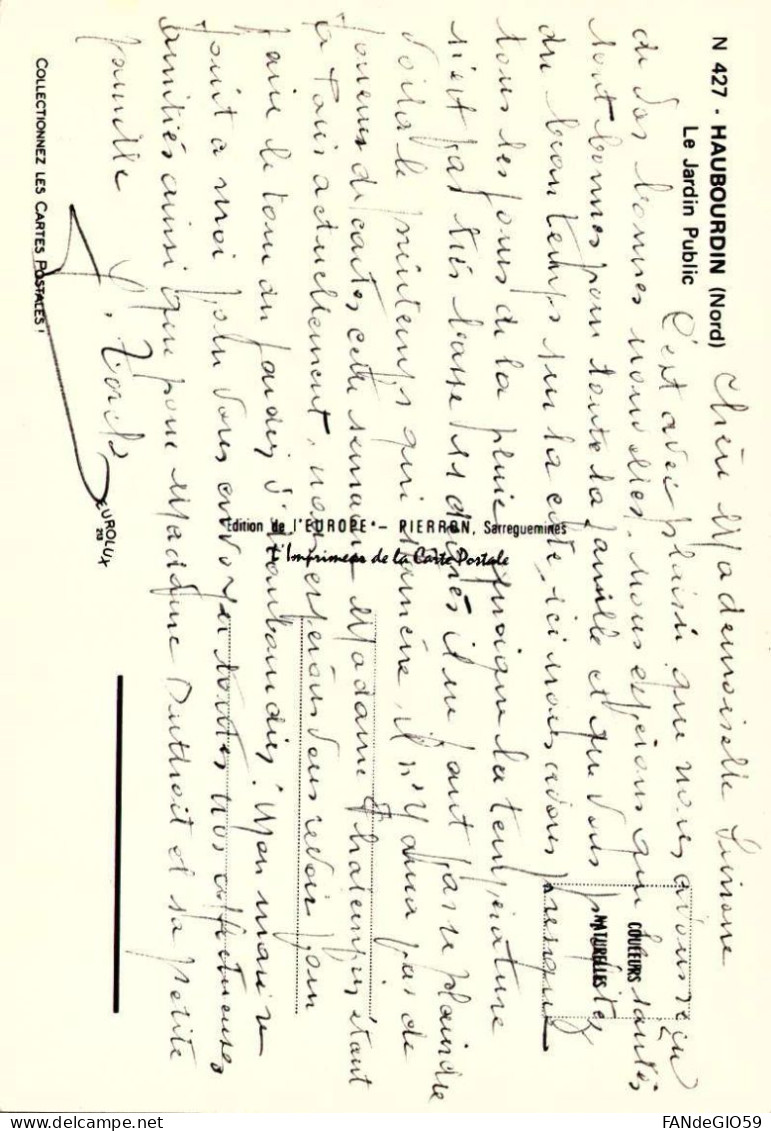 N 427 - HAUBOURDIN (Nord)
Le Jardin Public
Chère Mademoiselle Simone
C'est avec plaisir que nous avons reçu
de vos bonnes nouvelles, nous espérons que les santés
sont bonnes pour toute la famille et que vous profitez
du beau temps sur la côte, ici nous avons presque
tous les jours de la pluie quoique la température
n'est pas très basse il ne faut pas se plaindre
voilà le printemps qui s'amène, il n'y aura pas de
joueurs de cartes cette semaine Madame étant
à Paris actuellement, nous espérons vous revoir pour
faire le tour du jardin d'Haubourdin. Mon mari se
joint à moi pour vous envoyer toutes nos affectueuses
amitiés ainsi que pour Madame Duthoit et sa petite
famille
COLLECTIONNEZ LES CARTES POSTALES !
Edition de l'EUROPE - PIERRON, Sarreguemines
L'Imprimeur de la Carte Postale
EUROLUX
COULEURS
NATURELLES
FANdeGIO59